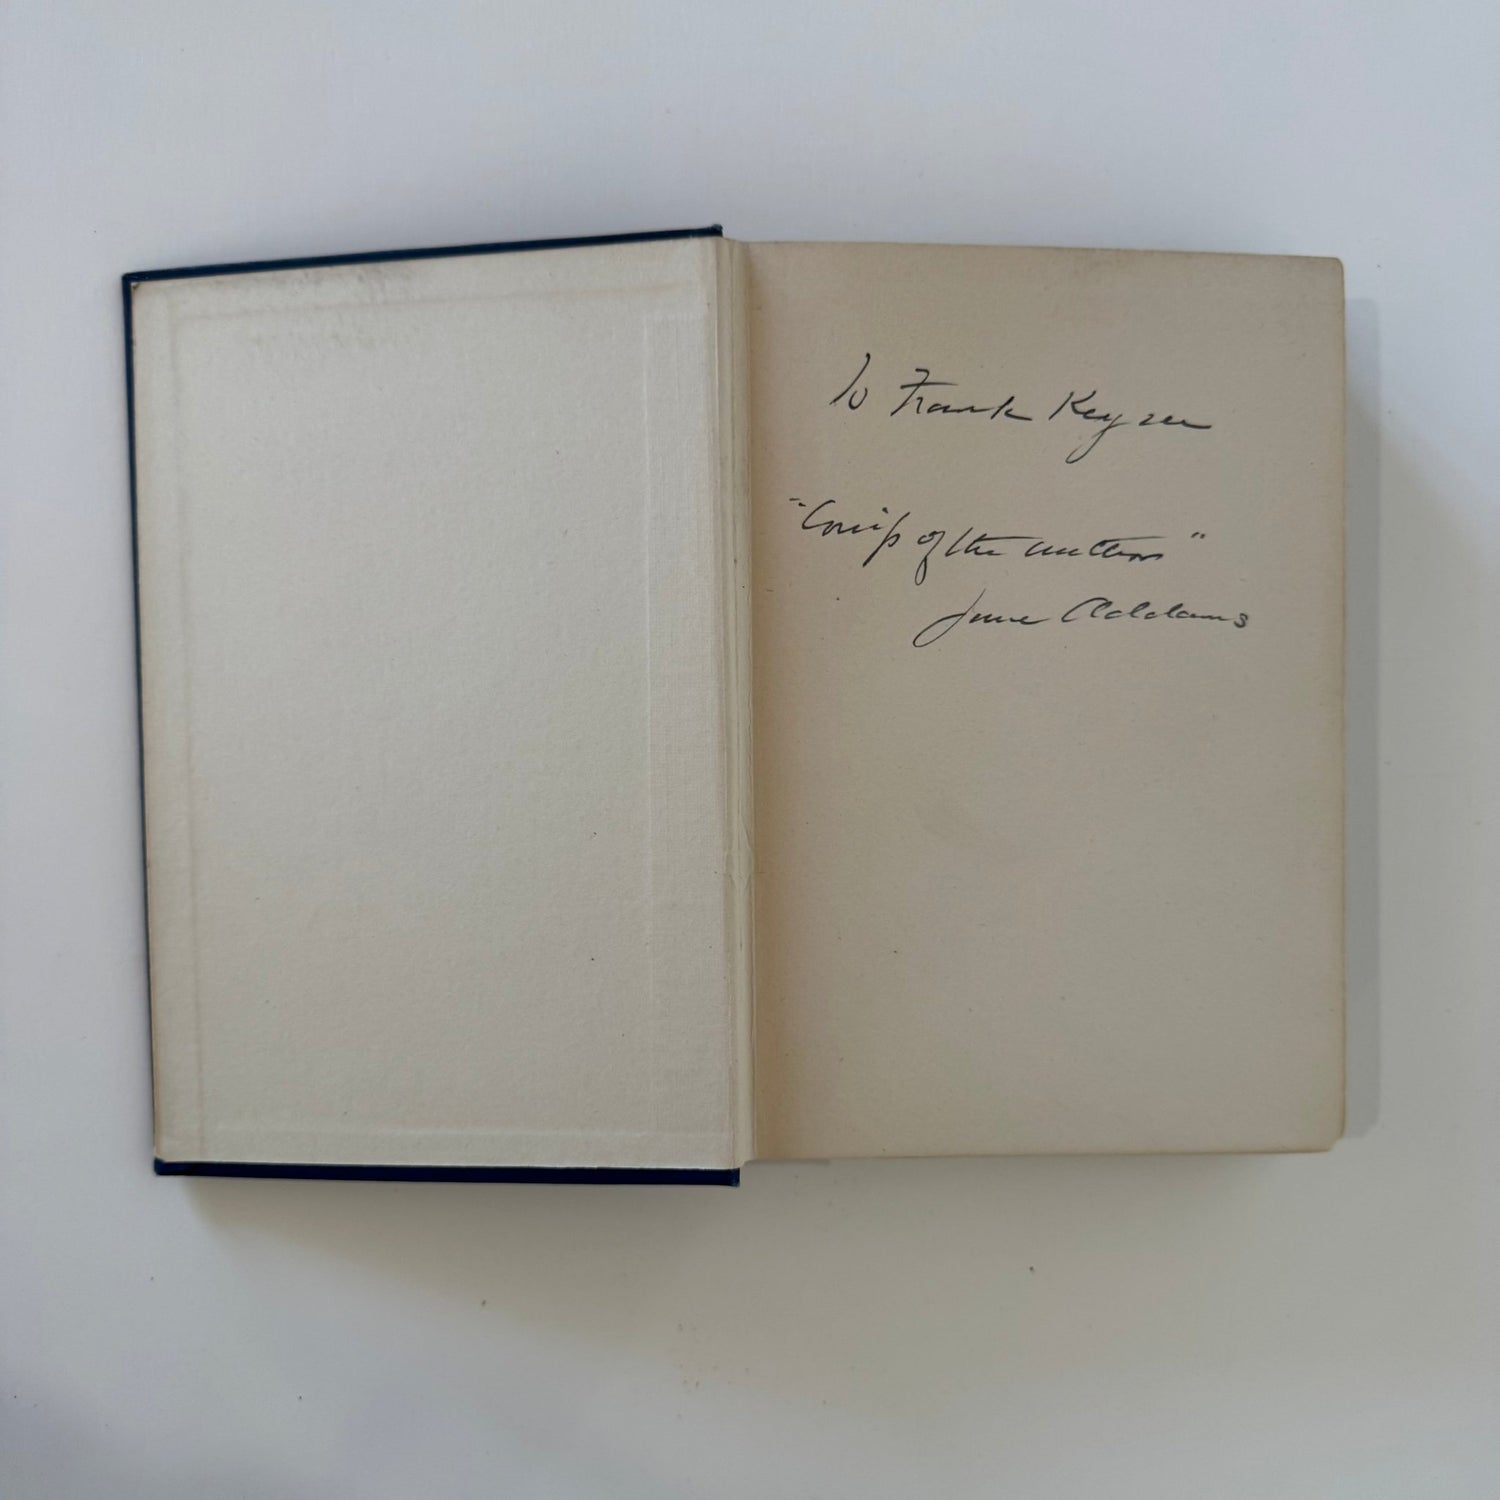 To Frank Keyser
of the author"
Jane Addams